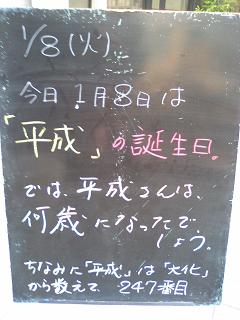 1/8(火)
今日1月8日は
「平成」の誕生日。
では、平成さんは、
何歳になったで
しょう。
ちなみに「平成」は「大化」
から数えて、247番目